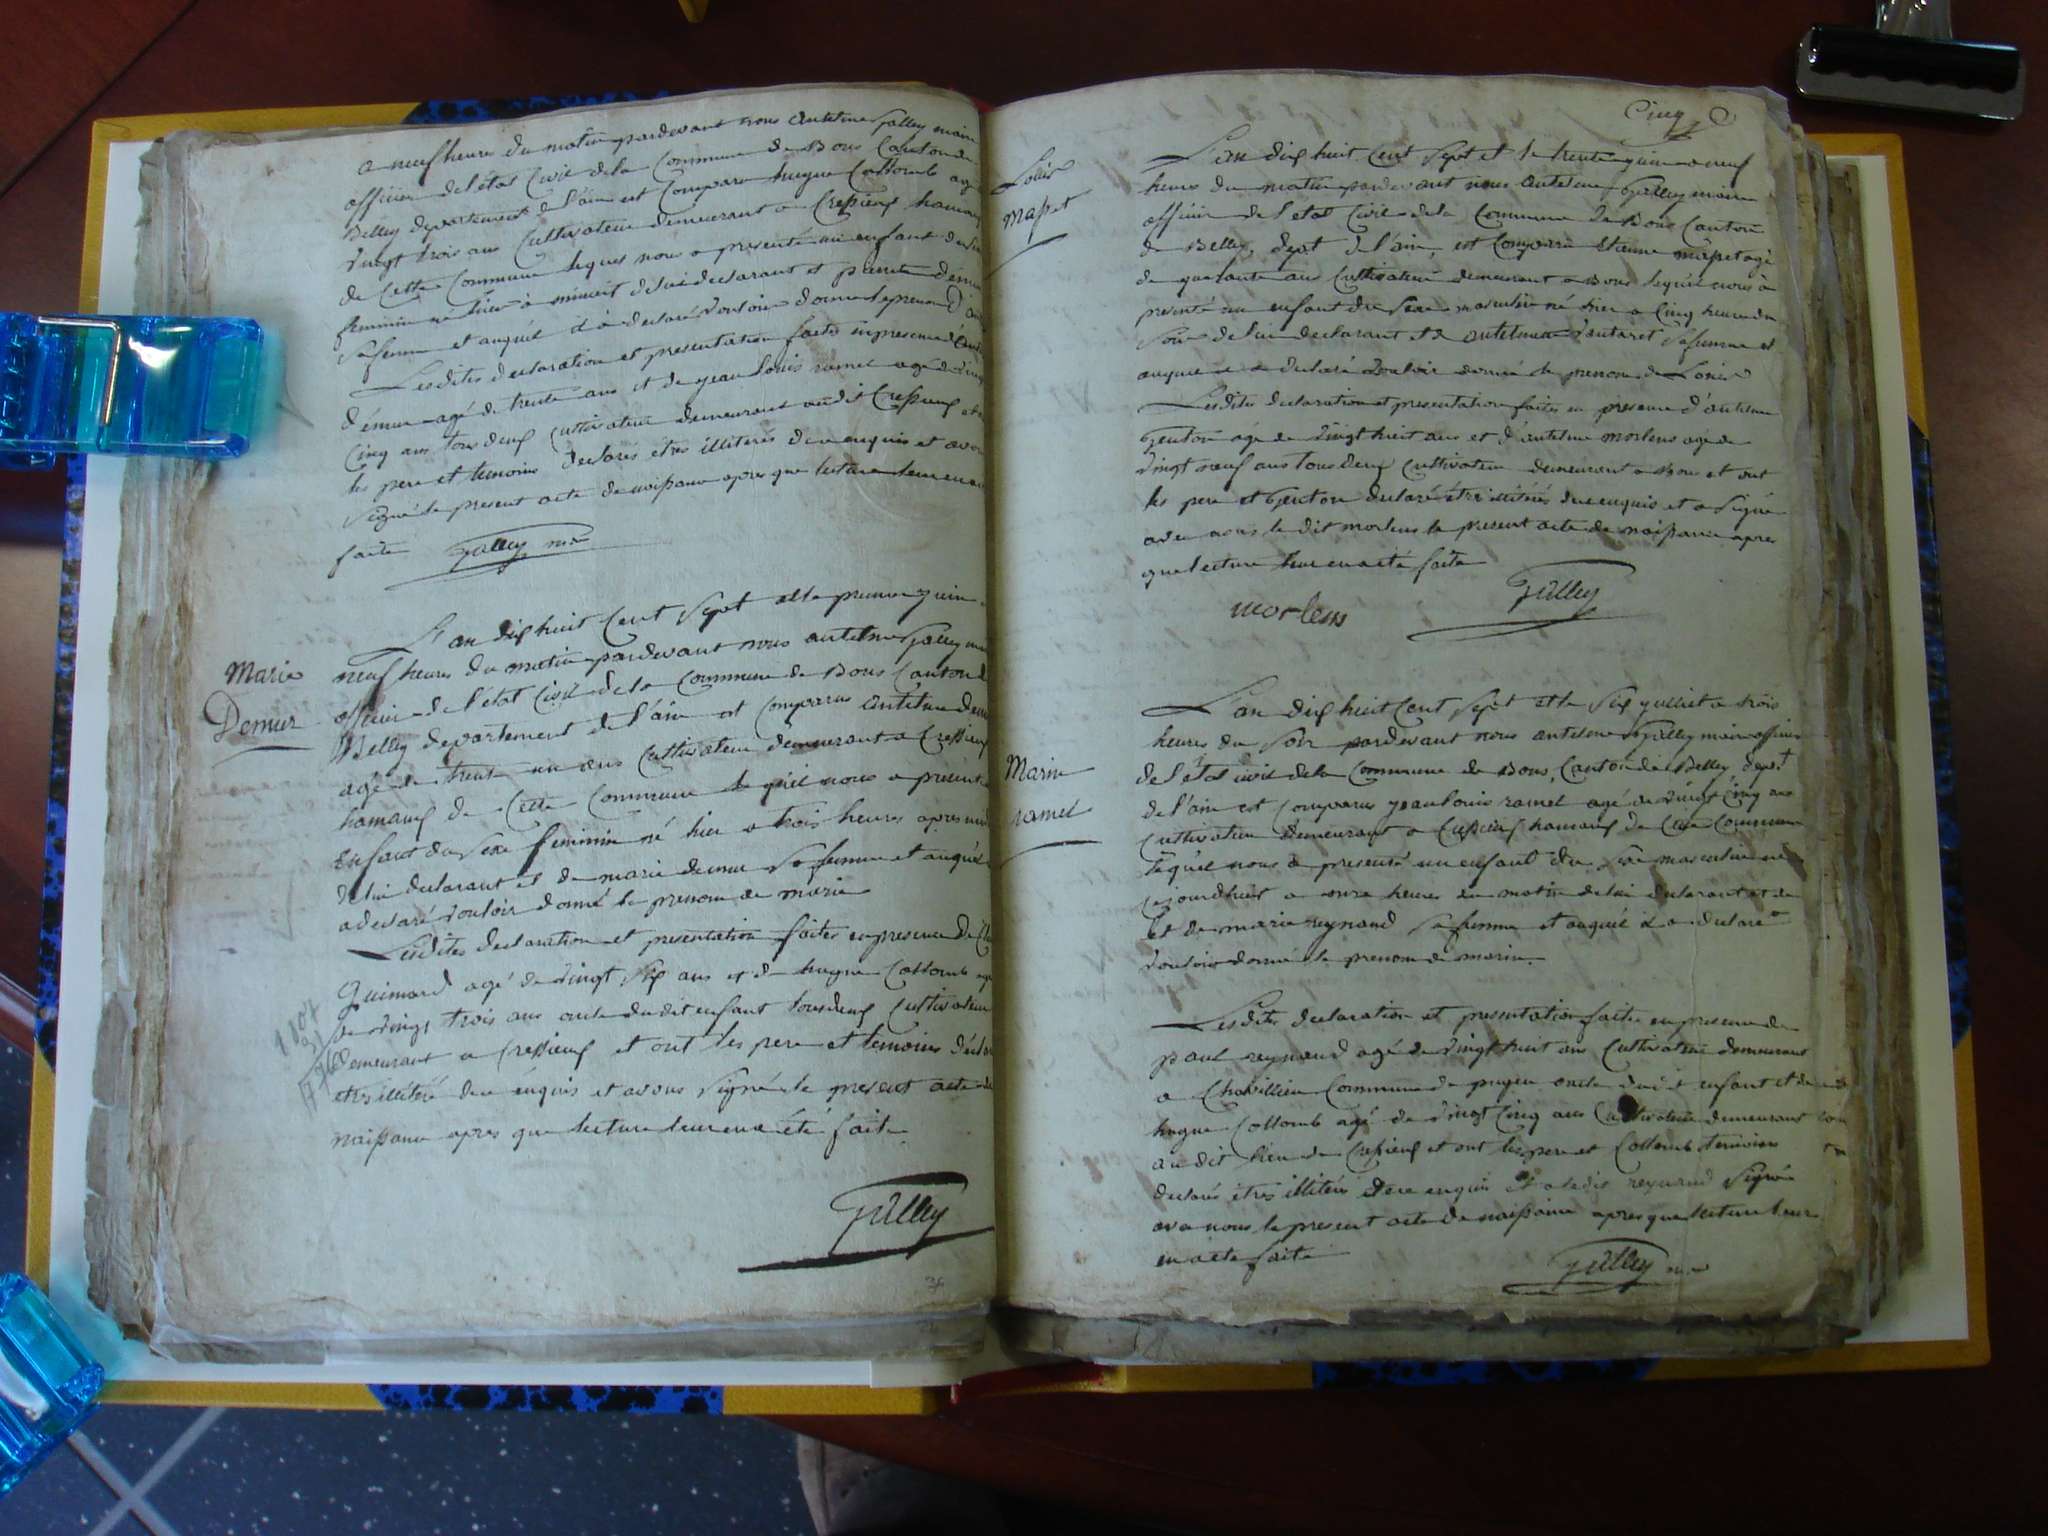 a neuf heure du matin pardevant nous antelme Galley maire
officier de l'état Civil de la Commune de Bons Canton de
Belley departement de l'ain est Comparu hugue Collomb agé
vingt trois ans Cultivateur demeurant a Crepieux hamau
de Cette Commune lequel nous a presenté un enfant du sexe
feminin né hier a minuit de lui declarant et
sa femme et auquel il a declaré vouloir donné le prenom
Lesdites declaration et presentation faites en presence
démur agé de trente ans et de jean Louis ramel agé de vingt
Cinq ans tous deux Cultivateur demeurant audit Crepieux et
les pere et temoins declarés etres illiterés de ce enquis et avons
signé le present acte de naissance apres que lecture leur en a
faite Galley
L'an dix huit Cent Sept et le premier juin a
Marie
Demur
neuf heures du matin pardevant nous antelme Galley
officier de l'état Civil de la Commune de Bons Canton de
Belley departement de l'ain est Comparus antelme demur
agé de trente un ans Cultivateur demeurant a Crepieux
hamaux de Cette Commune le quel nous a presenté
Enfant du Sexe feminin né hier a trois heures apres midi
de lui declarant et de marie demur sa femme et auquel
a declaré vouloir donné le prenom de marie
Lesdites declaration et presentation faites en presence de
Guimard agé de vingt Six ans et de hugue Collomb agé
de vingt trois ans oncle dudit enfant tous deux Cultivateur
demeurant a Crepieux et ont les pere et temoins déclaré
etres illiteré de ce enquis et avons Signé le present acte de
naissance apres que lecture leur en a été faite
Galley
Cinq
Louis
Mapet
L'an dix huit Cent Sept et le trente juin a neuf
heures du matin pardevant nous antelme Galley maire
officier de l'etat Civil de la Commune de Bons Canton
de Belley, dept de l'ain, est Comparu Etienne mapet agé
de quarante ans Cultivateur demeurant a Bons lequel nous a
presenté un enfant du Sexe masculin né hier a Cinq heure du
Soir de lui declarant et de antelmette sa femme et
auquel il a declaré vouloir donné le prenom de Louis
Lesdites declaration et presentation faites en presence d'antelme
Genton agé de vingt huit ans et d'antelme morlens agé de
vingt neuf ans tous deux Cultivateur demeurant a Bons et ont
les pere et Genton declaré être illiterés de ce enquis et a Signé
avec nous le dit morlens le present acte de naissance apres
que lecture leur en a été faite
morlens Galley
L'an dix huit Cent Sept et le Six juilliet a trois
heures du Soir pardevant nous antelme Galley maire officier
Marin
ramel
de l'état civil de la Commune de Bons, Canton de Belley dept
de l'ain est Comparus jean louis ramel agé de vingt Cinq ans
Cultivateur demeurant a Crepieux hamaux de Cette Commune
lequel nous a presenté un enfant du Sexe masculin né
cejourdhuit a onze heures du matin de lui declarant et de
et de marie reynaud sa femme et auquel il a declaré
vouloir donné le prenom de marin
Lesdites declaration et presentation faites en presence de
paul reynaud agé de vingt huit ans Cultivateur demeurant
a Chavillieu Commune de pugieu oncle dudit enfant et de
hugue Collomb agé de vingt Cinq ans Cultivateur demeurant
au dit lieu de Crepieux et ont les pere et Collomb temoins
declarés êtres illiterés de ce enquis et a ledit reynaud Signé
avec nous le present acte de naissance apres que lecture leur
en a ete faite
Galley